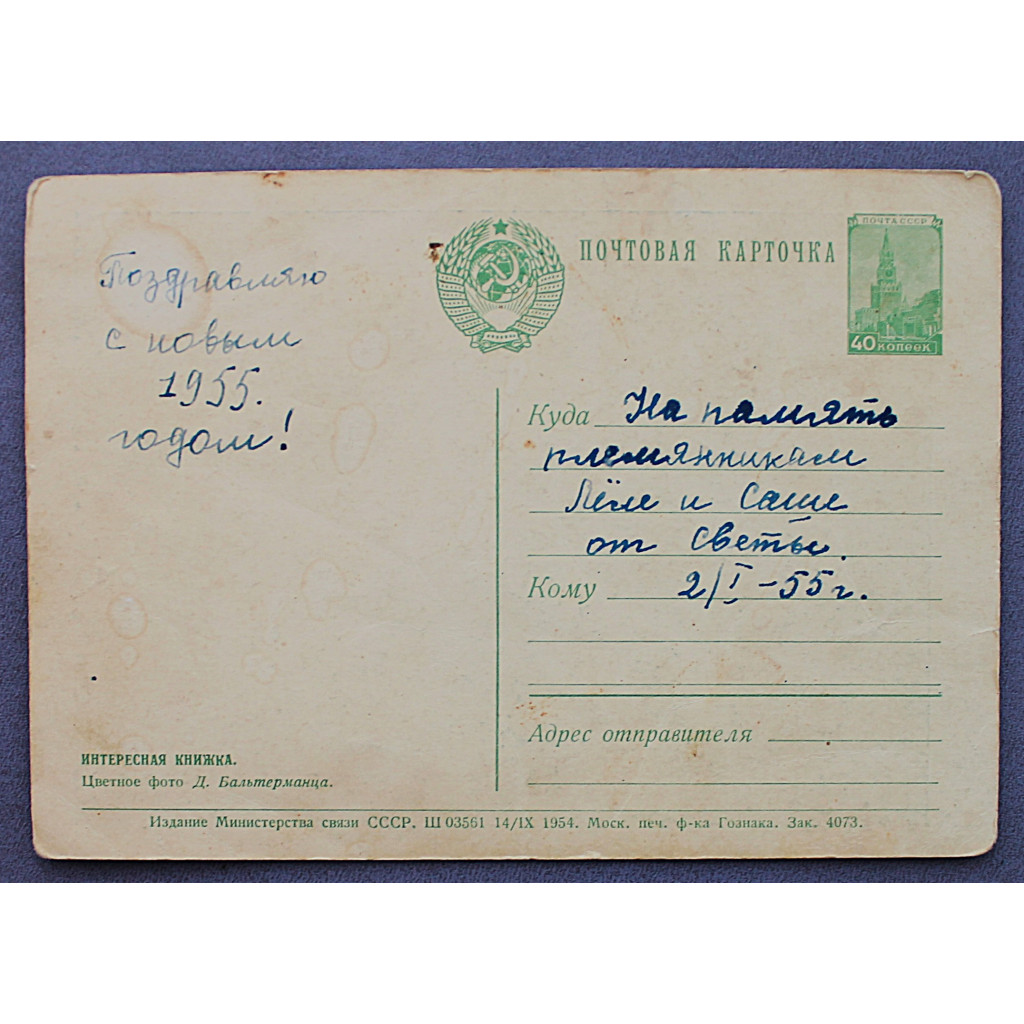 Поздравляю
с новым
1955.
годом!
ПОЧТОВАЯ КАРТОЧКА
ПОЧТА СССР
40 КОПЕЕК
Куда На память
племянникам
Лёле и Саше
от Светы.
Кому 2/I-55г.
Адрес отправителя
ИНТЕРЕСНАЯ КНИЖКА.
Цветное фото Д. Бальтерманца.
Издание Министерства связи СССР. Ш 03561 14/IX 1954. Моск. печ. ф-ка Гознака. Зак. 4073.